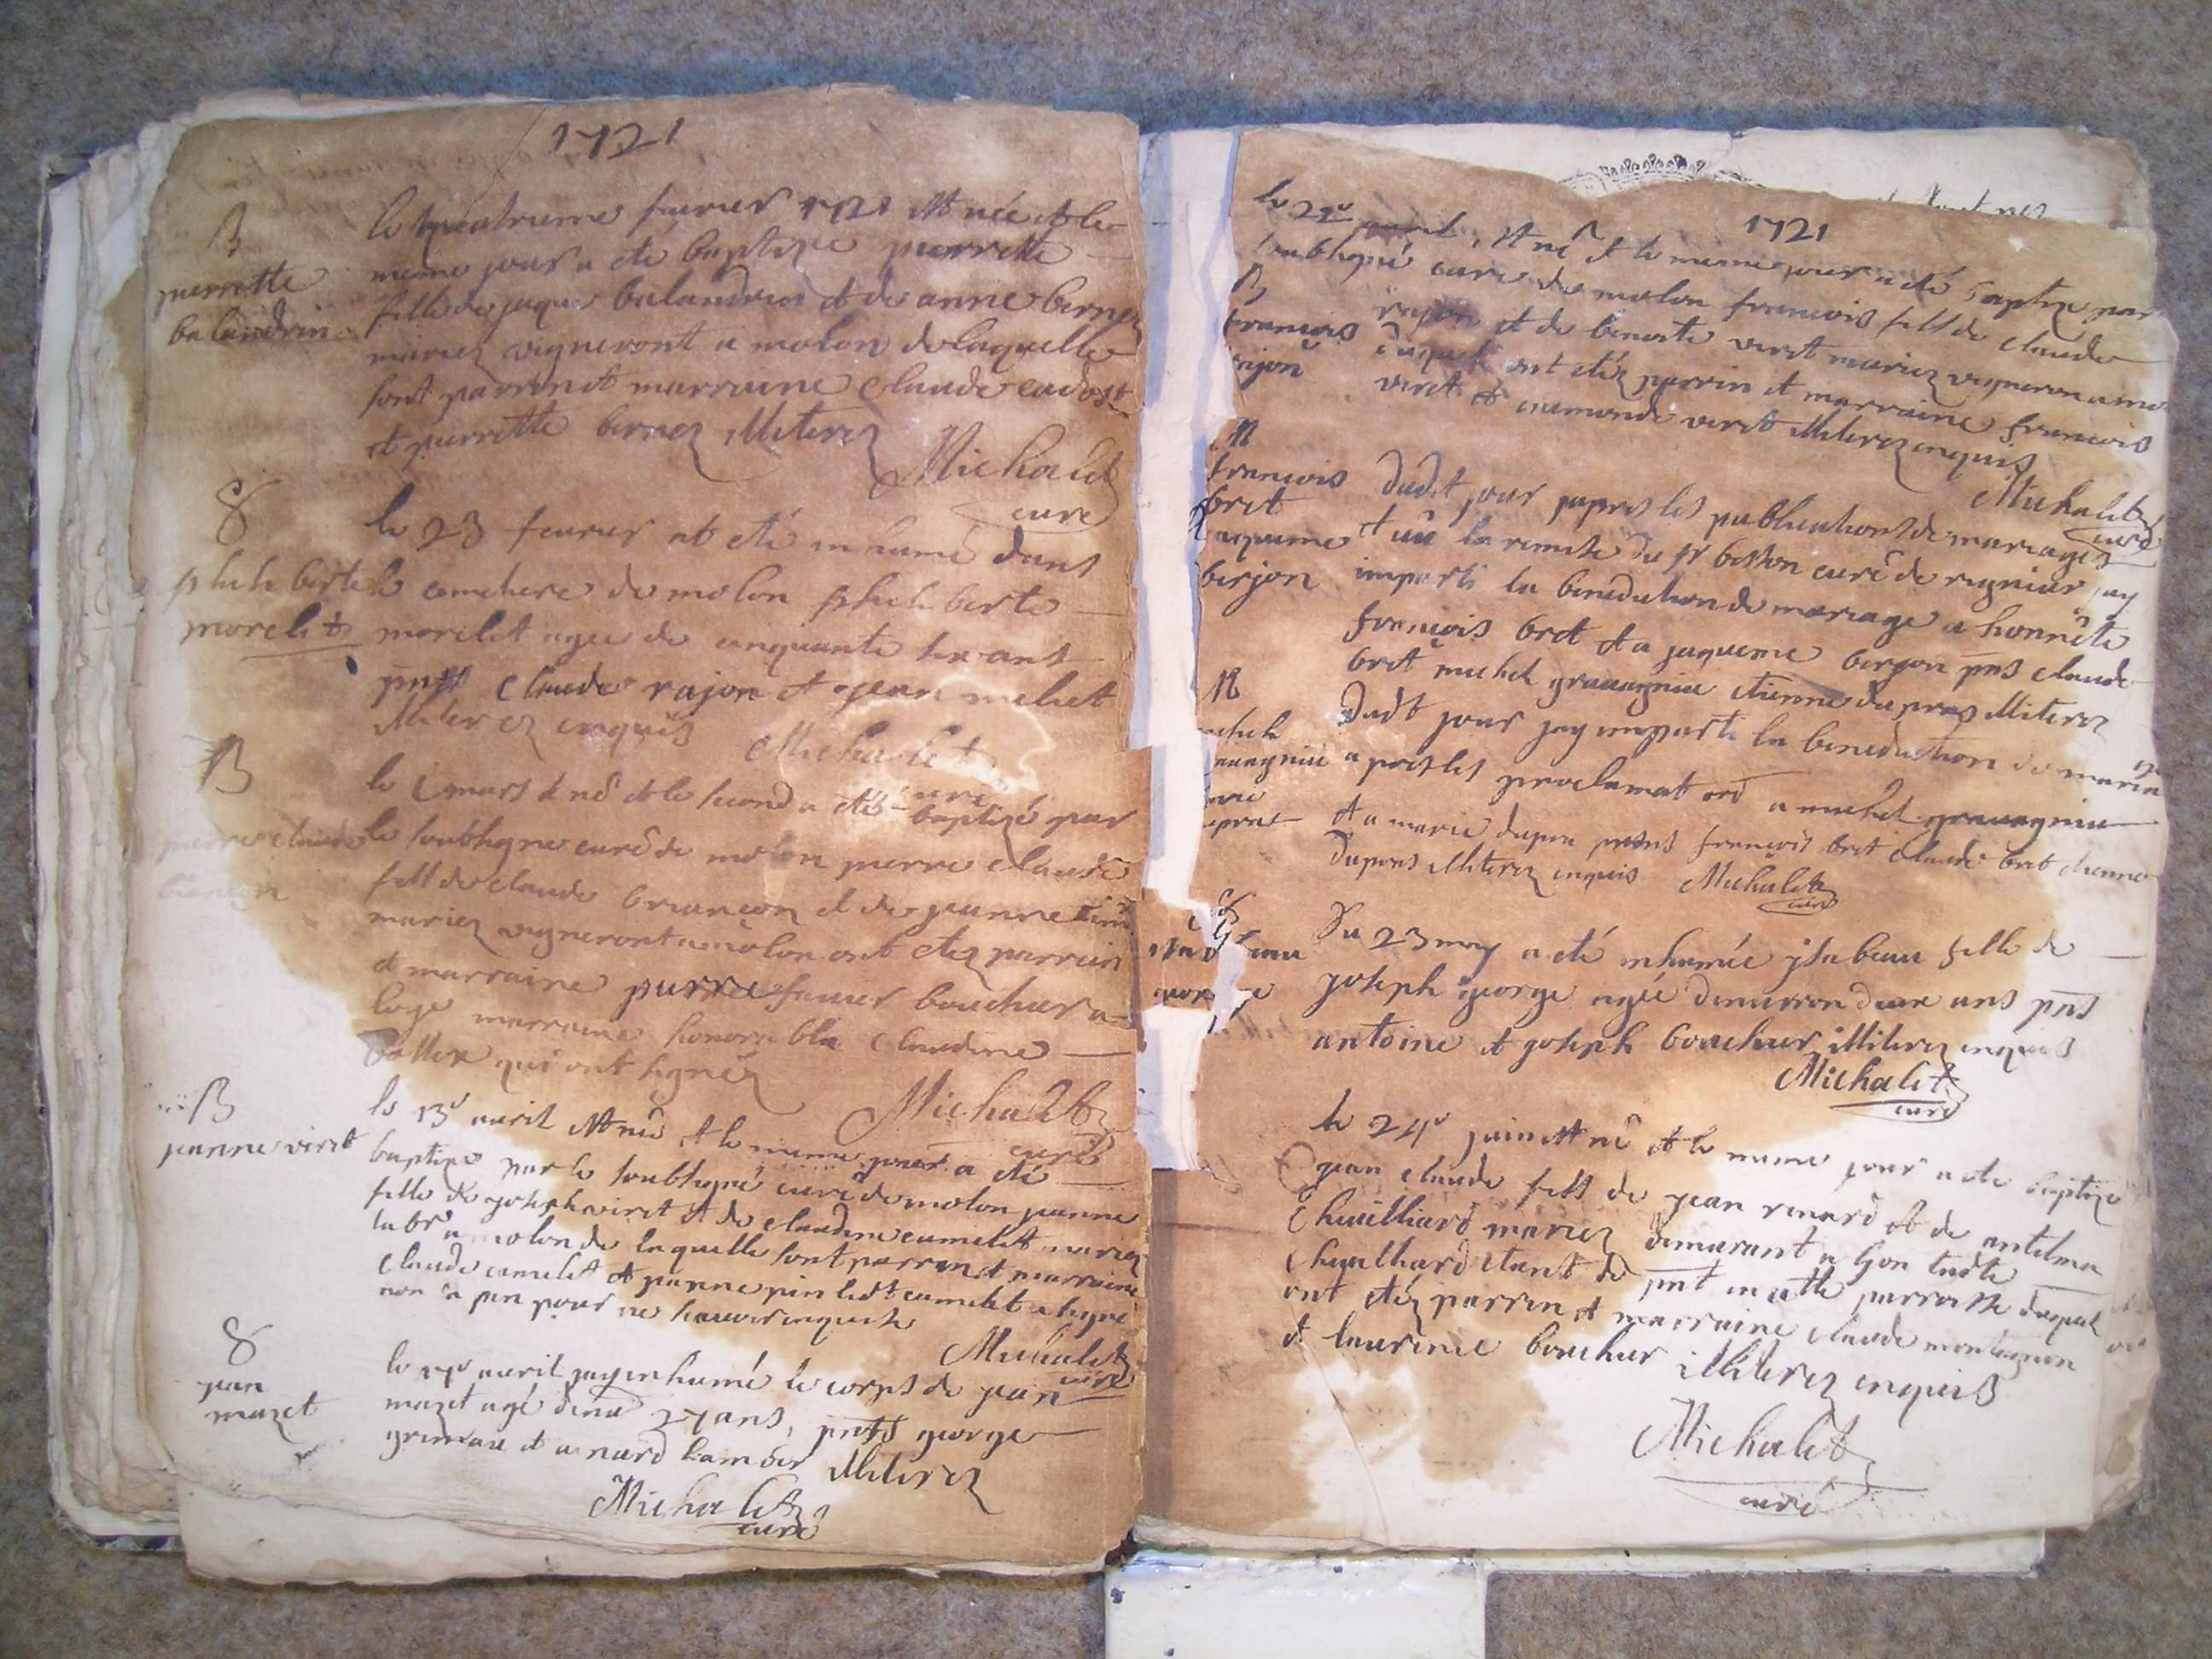 1721
B
perrette
balandrin
le quatrieme feurier 1721 est née et le
meme jour a eté baptizée perrette
fille de jaque balandrin et de anne bernez
mariez vigneront a molon de laquelle
sont parrin et marraine claude cadost
et perrette bernez illiterez
Michalet
curé
philiberte
morelet
le 23 feurier at eté inhumé dans
le cimetiere de molon philiberte
morelet agée de cinquante six ans
pnts claude rajon et jean meliet
illiterez enquis
Michalet
curé
B
pierre claude
briancon
le mars é né et le second a etéz baptizé par
le soubsigne curé de molon pierre claude
fils de claude briançon et de jeanne
mariez vigneront a molon ont etez parrin
et marraine pierre favier boucher a
loye marraine honorable claudine
qui ont signéz
Michalet
curé
B
jeanne viret
le 13e auril est née et le meme jour a eté
baptizée par le soubsigné curé de molon jeanne
fille de joseph viret et de claudine camelet mariez
labr a molon de laquelle sont parrin et marraine
claude camelet et jeanne pin ledt camelet a signé
non la pin pour ne scauoir enquise
Michalet
curé
jean
mazet
le auril jay inhumé le corps de jean
mazet agé denu 27 ans, pnts george
grimau et
illiterez
Michalet
curé
1721
le 22e auril, est né et le meme jour a eté baptizé par
soubsigné curé de molon francois fils de claude
B
francois
rajon
rajon et de benoite viret mariez vigneron a mo
duquel ont etéz parrin et marraine francois
viret et viret illiterez enquis
Michalet
curé
M
francois
bret
jaqueme
berjon
dudt jour japres les publications de mariages
et uû la remise du sr bosson curé de rignieu jay
imparti la benediction de mariage a honnête
françois bret et a jaqueme berjon pns claude
bret michel grauagnieu etienne dupras illiterez
M
michel
grauagnieu
marie
dupras
dudt jour jay imparti la benediction de mariage
apres les proclamat ord a michel grauagnieu
et a marie dupra presns françois bret claude bret etienne
dupras illiterez enquis Michalet
curé
ysabeau
george
du 23 may a eté inhumée ysabeau fille de
joseph george agée denuiron deux ans pns
antoine et joseph boucher illiterez enquis
Michalet
curé
le 24e juin est né et le meme jour a ete baptizé
jean claude fils de jean renard et de antelma
chuilliard mariez demurant a lyon ladte
chuilliard etant de pnt en cette parroisse duquel
ont etéz parrin et marraine claude montagnon
et laurence boucher illiterez enquis
Michalet
curé